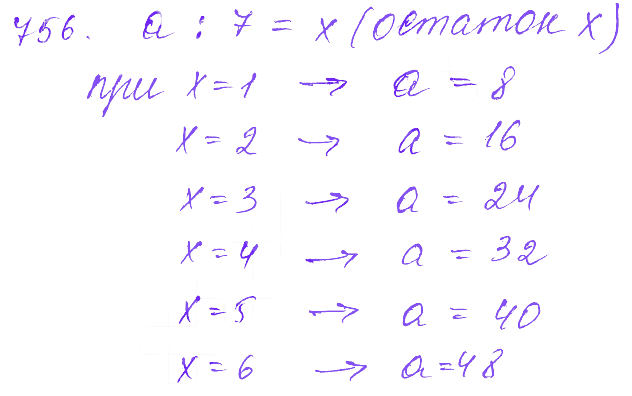 756. a : 7 = x (остаток x)
при x = 1 → a = 8
x = 2 → a = 16
x = 3 → a = 24
x = 4 → a = 32
x = 5 → a = 40
x = 6 → a = 48